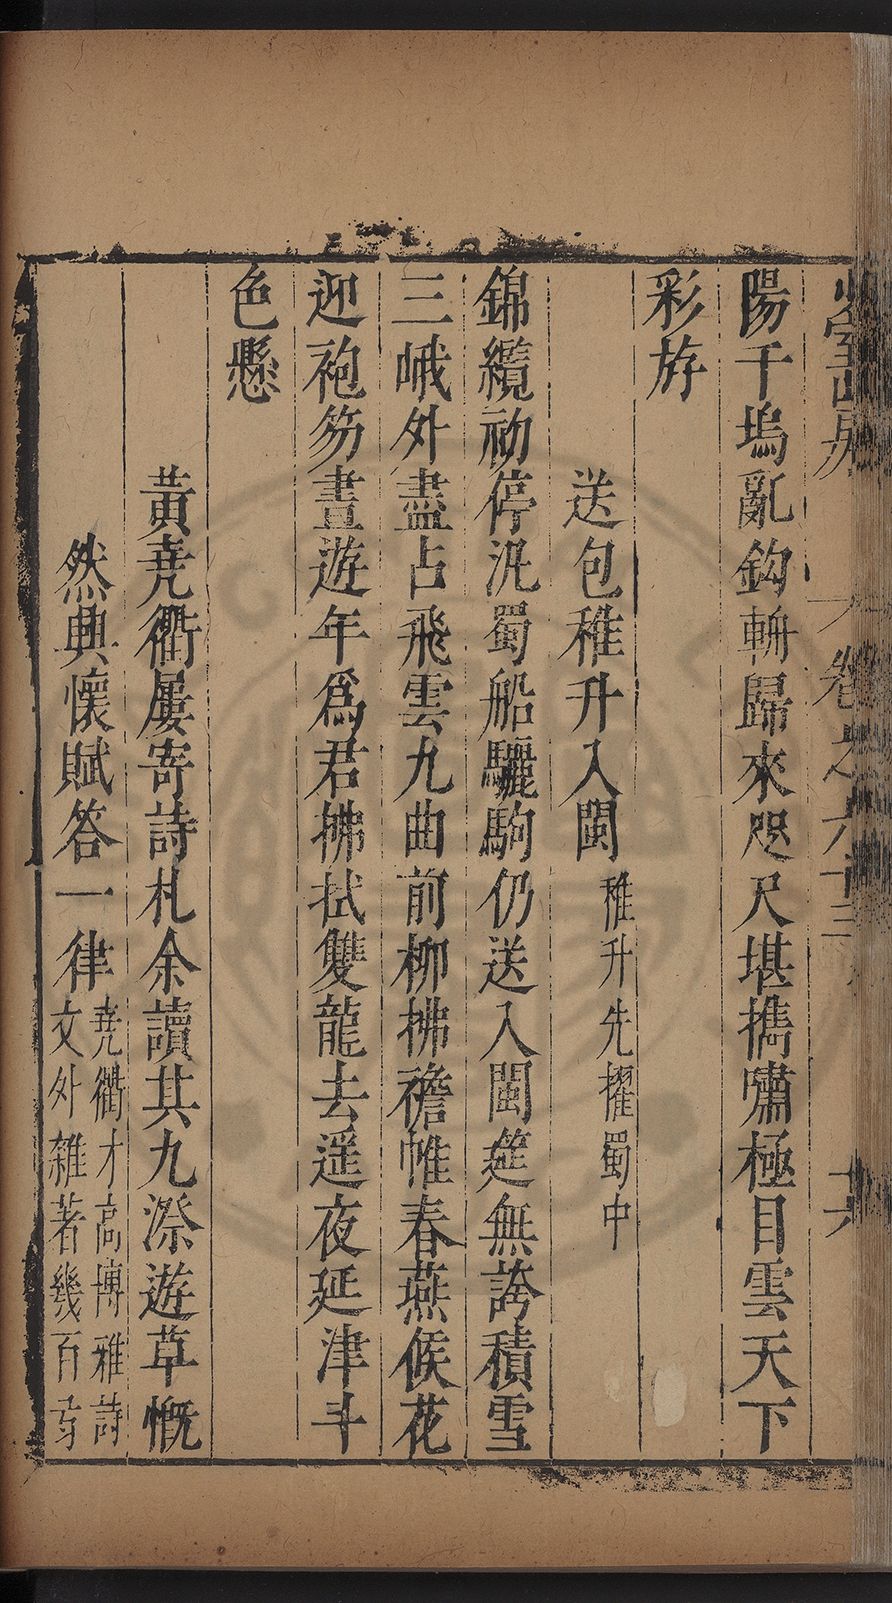 卷之六十三
十六
陽千塢亂鈎輈歸來咫尺堪攜嘯極目雲天下
彩斿
送包稚升入閩 稚升先擢蜀中
錦纜初停汎蜀船驪駒仍送入閩筵無誇積雪
三峨外盡占飛雲九曲前柳拂襜帷春燕候花
迎袍笏晝遊年爲君拂拭雙龍去遥夜延津斗
色懸
黃堯衢屢寄詩札余讀其九漈遊草慨
然興懷賦答一律 堯衢才高博雅詩
文外雜著幾百